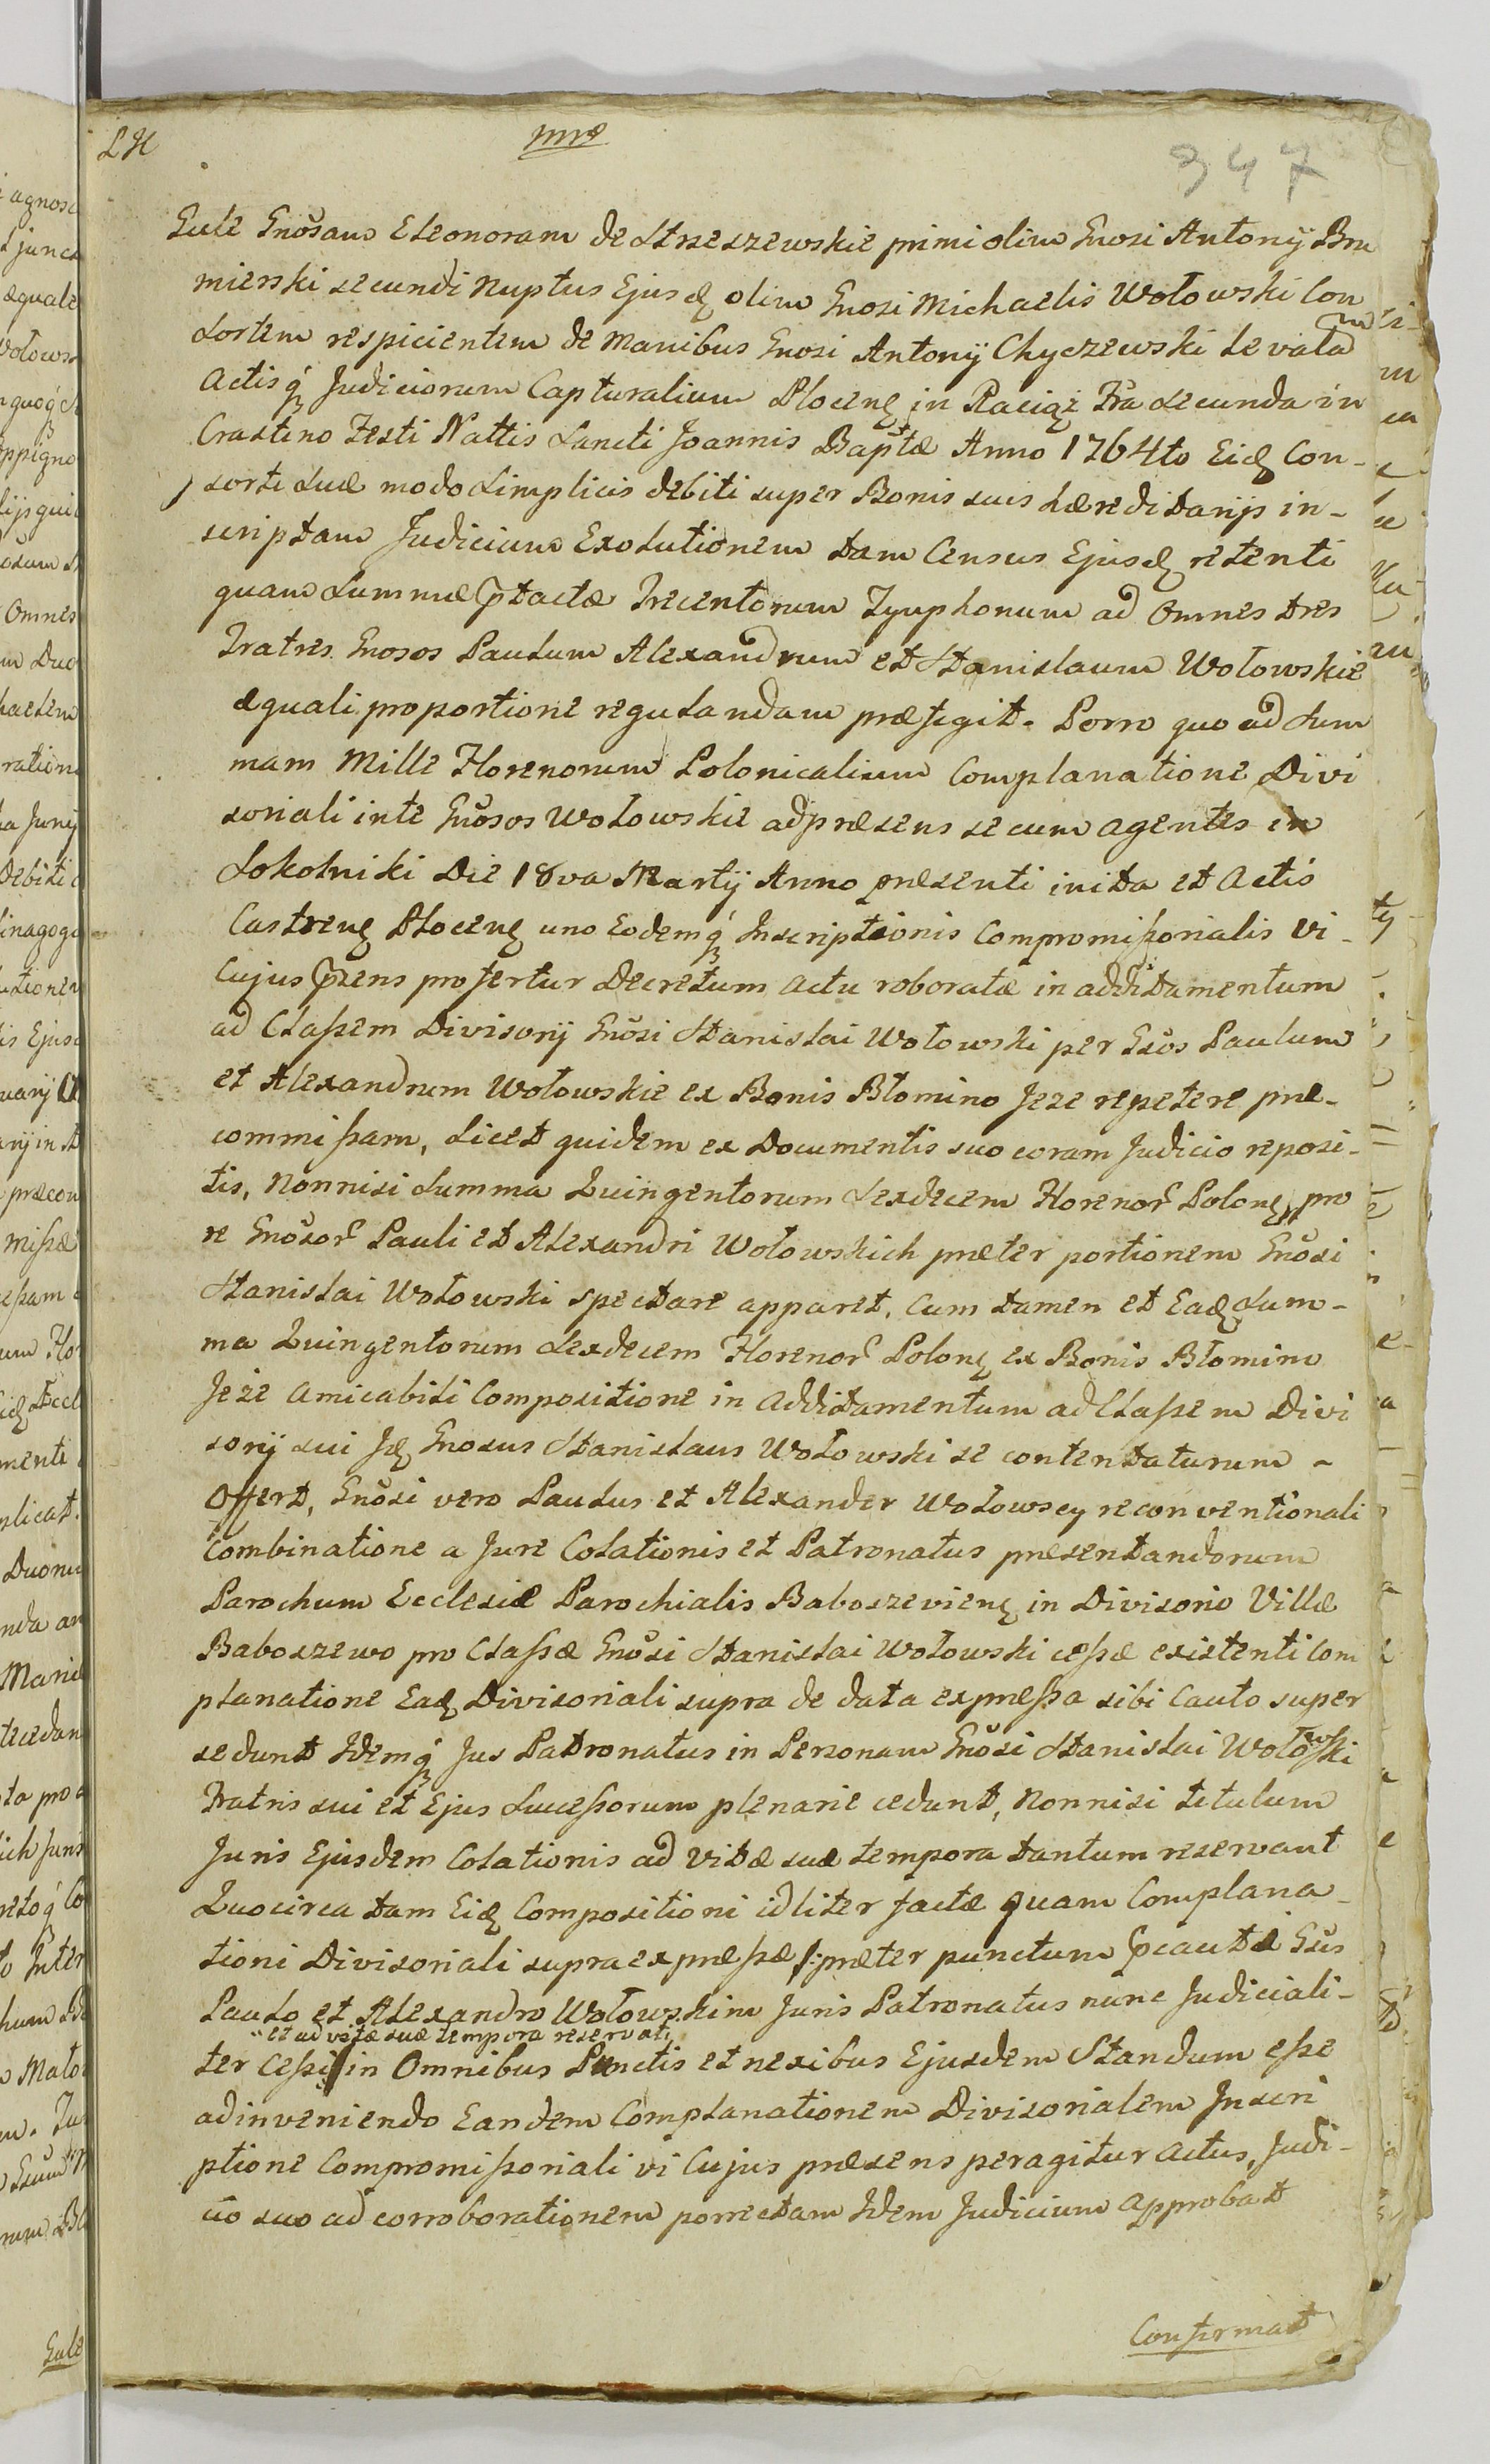 347
Gule Gnosam Eleonoram de Strzeszewskie primi olim Gnosi Antonij Bro
mierski secundi Nuptus Ejusq olim Gnosi Michaelis Wołowski Con
sortem respicientem de Manibus Gnosi Antonij Chyczewski Levatam
Actisq Judiciorum Capturalium Plocenq in Raciąż Fra secunda in
Crastino Festi Nattis Sancti Joannis Baptæ Anno 1764to Eidq Con-
sorti suæ modo simplicis debiti super Bonis suis hæreditarijs in-
scriptam Judicium Exolutionem tam Census Ejusdq retenti
quam Summæ Ptactæ Trecentorum Tynphonum ad Omnes tres
Fratres Gnosos Paulum Alexandrum et Stanislaum Wołowskie
æquali proportione regulandam præfigit. Porro quo ad Sum
mam Mille Florenorum Polonicalium Complanatione Divi
soriali inte Gnosos Wołowskie adpræsens secum agentes in
Sokolniki Die 18va Martij Anno præsenti inita et Actis
Castrenq Plocenq uno Eodemq Inscriptionis Compromissorialis vi
Cujus Pzens profertur Decretum Actu roboratæ in additamentum
ad Classem Divisorij Gnosi Stanislai Wołowski per Gsos Paulum
et Alexandrum Wołowskie ex Bonis Błomino Jeze repetere præ-
commissam, Licet quidem ex Documentis suo coram Judicio reposi-
tis, Nonnisi Summa Quingentorum Sexdecem Florenor Polonq pro
re Gnosor Pauli et Alexandri Wołowskich præter portionem Gnosi
Stanislai Wołowski spectare apparet, Cum tamen et Eadq Sum-
ma Quingentorum Sexdecem Florenor Polonq ex Bonis Błomino
Jeże Amicabili Compositione in Additamentum ad Classem Divi
sorij sui Jdq Gnosus Stanislaus Wołowski se contentaturum -
Offert, Gnosi vero Paulus et Alexander Wołowscy reconventionali
Combinatione a Jure Colationis et Patronatus præsentandorum
Parochum Ecclesiæ Parochialis Baboszevienq in Divisorio Villæ
Baboszewo pro Classæ Gnosi Stanislai Wołowski cessæ existenti Com
planatione Eadq Divisoriali supra de data expressa sibi Cauto super
sedunt Idemq Jus Patronatus in Personam Gnosi Stanislai Wołowski
Fratris sui et Ejus Successorum plenarie cedunt, Nonnisi titulum
Juris Ejusdem Colationis ad Vitæ suæ tempora tantum reservant
Quocirca tam Eidq Compositioni idliter factæ quam Complana-
tioni Divisoriali supra expressæ /:præter punctum Pcautæ Gsis
Paulo et Alexandro Wołowskim Juris Patronatus nunc Judiciali-
et ad vitæ suæ tempora reservati
ter Cessi in Omnibus Punctis et nexibus Ejusdem Standum esse
adinveniendo Eandem Complanationem Divisorialem Inscri
ptione Compromissoriali vi Cujus præsens peragitur Actus, Judi-
cio suo ad corroborationem porrectam Idem Judicium Approbat
Confirmat